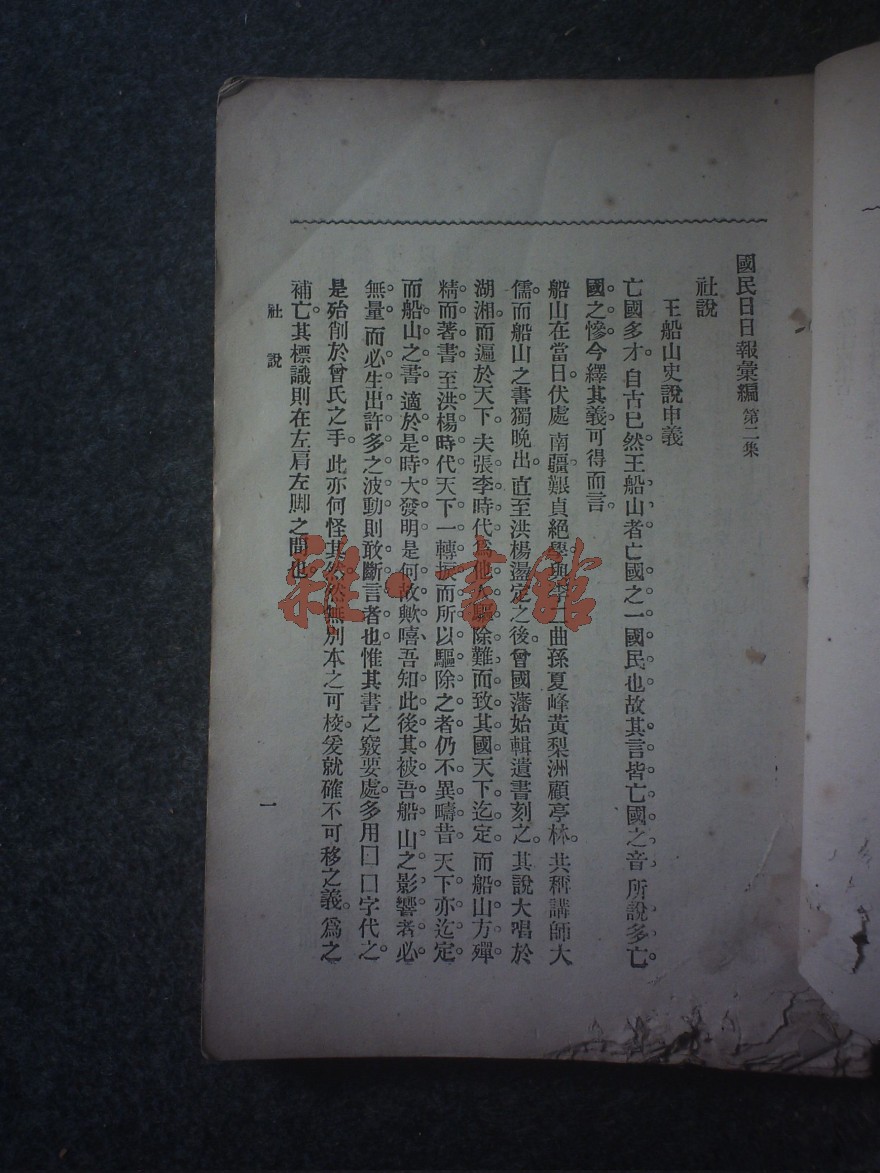 國民日日報彙編 第二集
社說
王船山史說申義
亡國多才。自古已然王船山者亡國之一國民也故其言皆亡國之音。所說多亡
國之慘今繹其義可得而言
船山在當日伏處 南疆艱貞絕學與李二曲孫夏峰黃梨洲顧亭林。共稱講師大
儒而船山之書獨晚出。直至洪楊盪定之後。曾國藩始輯遺書刻之。其說大唱於
湖湘而遍於天下 夫張李時代爲他人驅除難而致其國天下迄定 而船山方殫
精而著書 至洪楊時代天下一轉振而所以驅除之者仍不異疇昔 天下亦迄定
而船山之書 適於是時大發明是何故歟嘻吾知此後其被吾船山之影響者必
無量 而必生出許多之波動則敢斷言者也惟其書之竅要處。多用囗囗字代之。
是殆削於曾氏之手。此亦何怪其然然無別本之可校。爰就確不可移之義。爲之
補亡。其標識則在左肩左脚之間也。
社說
一
雜·書館